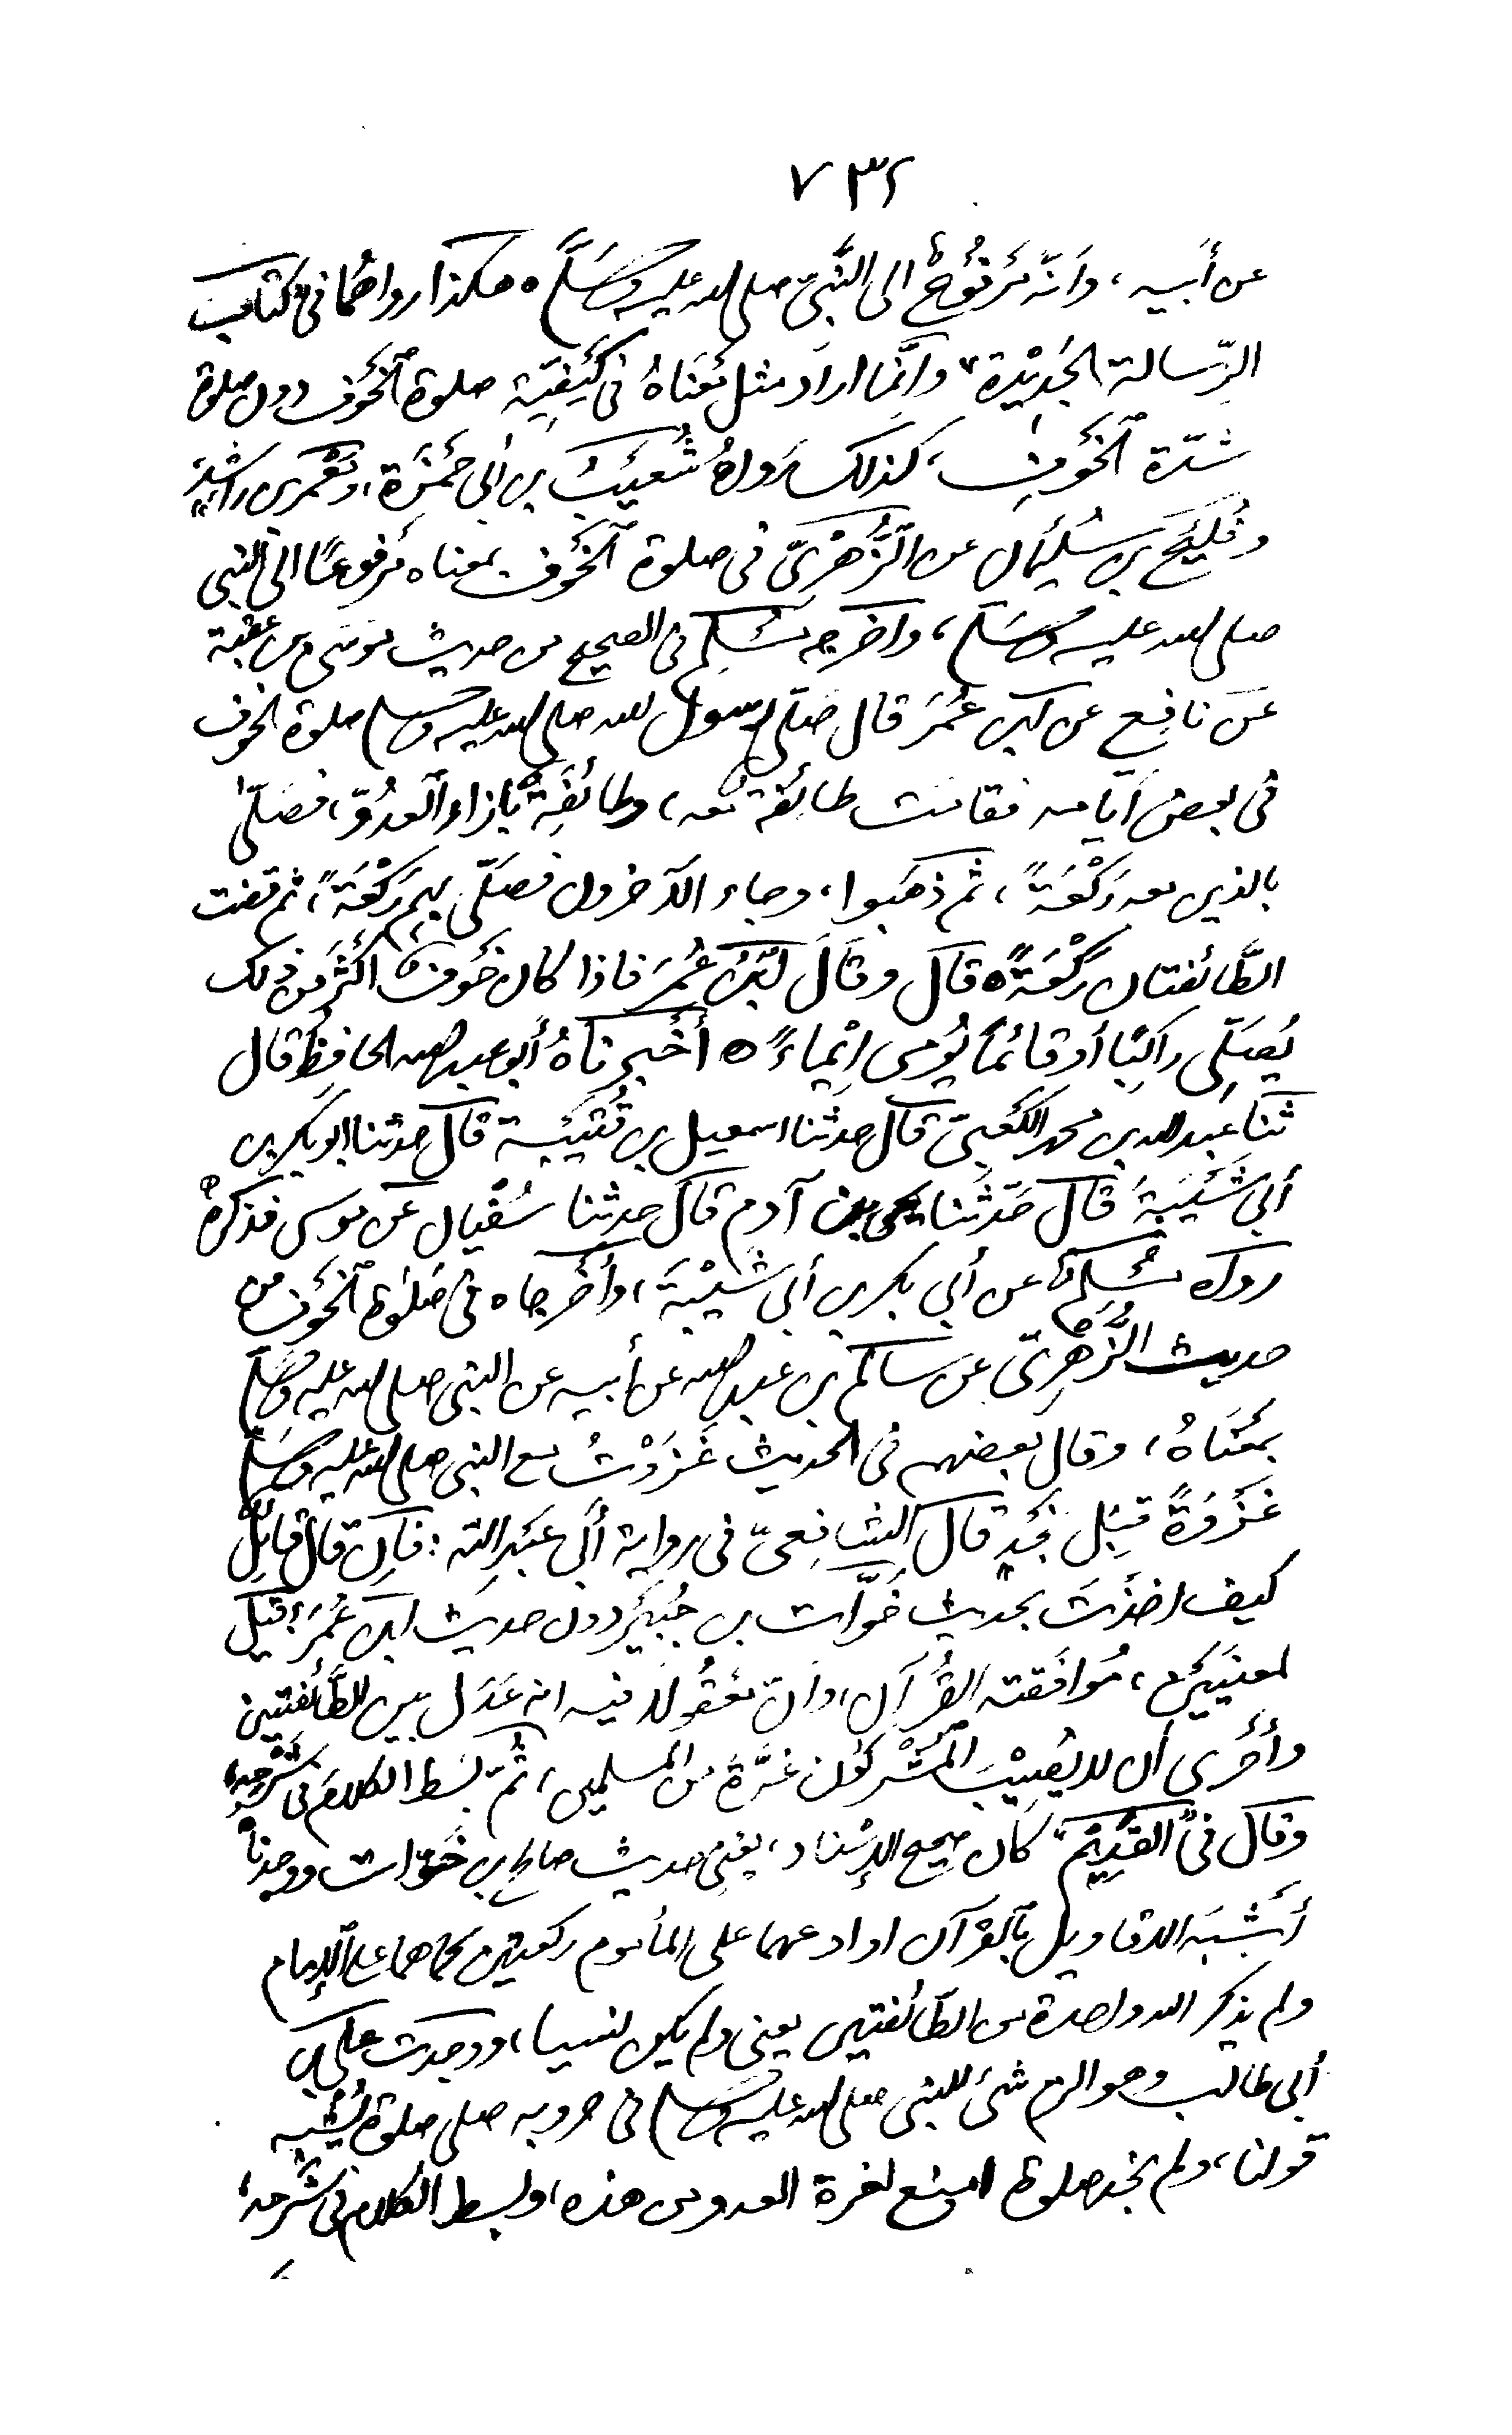 ٧٣٢
عن أبيه، وَأنّه مَرْفُوعٌ الى النَّبيّ صلى الله عليه وسَلَّم ٥ هكذا رواهُما فى كتاب
الرّسالة الجَدِيْدة" وانّما اراد مثل مَعْناهُ فى كَيْفِيّة صلوة الْخَوف دون صلوة
شدّة الْخَوفِ، كذلك رَواهُ شُعَيْبُ بن ابى حَمْزَة، ومَعْمَر بن راشِدٍ
وفُلَيْحُ بن سُلَيْمان عن الزُّهْرِىّ فى صلوة الْخَوْف بمعناه مَرفوعًا الى النبى
صلى الله عليه وسَلم، واخرجه مُسْلِم فى الصحيح من حديث موسَى بن عقبة
عَن نافِعٍ عن ابن عُمَرَ قال صَلّى رسول الله صلى الله عليه وسلم صلوة الخوف
فى بعض أيّامه فقامت طائفة معه، وطائِفَةٌ بإزاء الْعَدُوّ، فصَلّى
بالذين معه رَكْعَةً، ثم ذهَبوا، وجاء الآخرون فصَلّى بهِم رَكْعَةً، ثم قضت
الطَّائفتان رَكْعَةً ٥ قال وقَالَ ابْنُ عُمَرَ فاذا كان خَوفٌ اكْثَر مِن ذلك
يُصَلِّى راكبًا أو قائمًا يُومِى إيْماءً ٥ أخْبرناهُ أبو عبد الله الحافِظُ قال
ثنا عبد الله بن محمد الكَعْبىّ قال حدثنا اسمعيل بن قُتَيْبَة قال حدثنا ابو بكر بن
أبى شَيْبَةَ قال حَدّثَنا يحيى بن آدم قال حدثنا سُفْيان عَن موسى فذكرهُ
رواه مُسْلم عن أبى بكر بن أبى شَيْبَةَ، وأخْرجاه فى صَلوة الْخَوف من
حديث الزُّهْرِىّ عَن سالم بن عبد الله عن أبيه عن النبى صلى الله عليه وسلم
بمَعْنَاهُ، وقال بعضهم فى الحديث غَزَوْتُ مع النبى صلى الله عليه وسَلم
غَزْوَةً قِبَل نَجْدٍ قال الشافِعىّ فى رواية أبى عَبْدِ الله: فإن قال قائلٌ
كيف اخذْتَ بحديث خَوّات بن جُبَيْر دون حديث ابن عُمَرَ، قيل
لمعنَيَيْن، مُوافَقته القُرآن، وأنّ معْقُولًا فيه انه عَدْل بين الطّائفتين
وأحْرى أن لا يُصِيْبَ المُشْركُون غِرَّةً من المسلمين، ثُمّ بَسَط الكلامَ فى شَرْحِه،
وقال فى "القَدِيْم" كان صحيح الإسْناد، يعْنِى حديث صالح بن خَوّات ووجدناه
أَشْبَه الاقاويل بالْقرآن اواد عهما على المأموم ركعتين كما هما على الإمام
ولم يذكر الله واحدة من الطّائفتين يعنى ولم يكن نسيا، ووجدت على بن
أبى طالب وهو الزم شئ للنبى صلى الله عليه وسلم فى حروبه صلى صلوة يُشْبه
قولنا، ولم نجد صلوة امنع لغرة العدو من هذه، وبسط الكلام فى شَرحه،